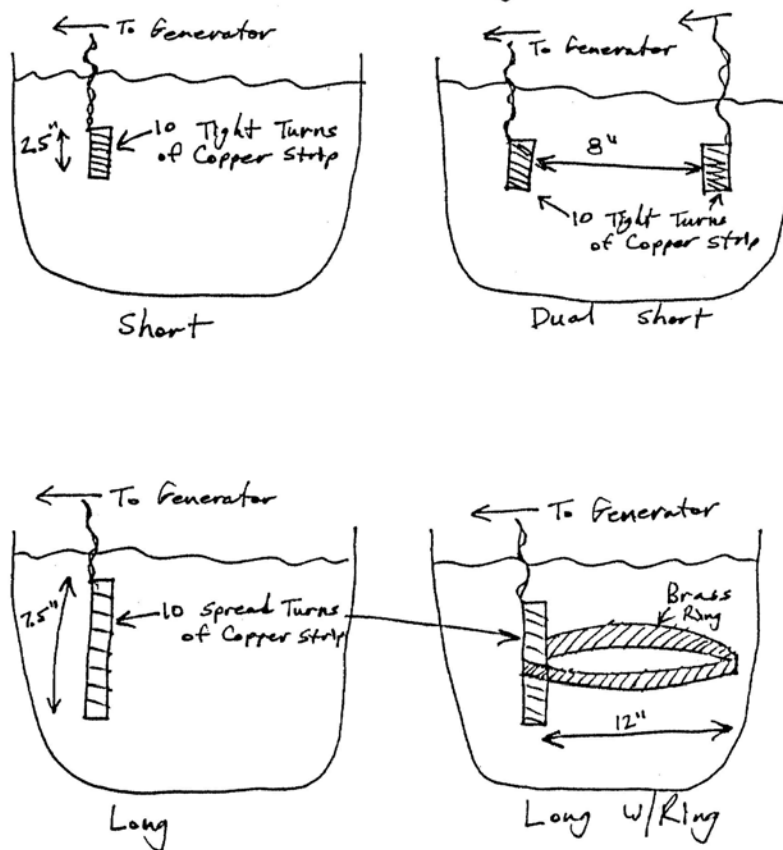 To Generator
2.5"
10 Tight Turns
of Copper Strip
Short
To Generator
8"
10 Tight Turns
of Copper Strip
Dual Short
To Generator
7.5"
10 Spread Turns
of Copper Strip
Long
To Generator
Brass
Ring
12"
Long W/Ring